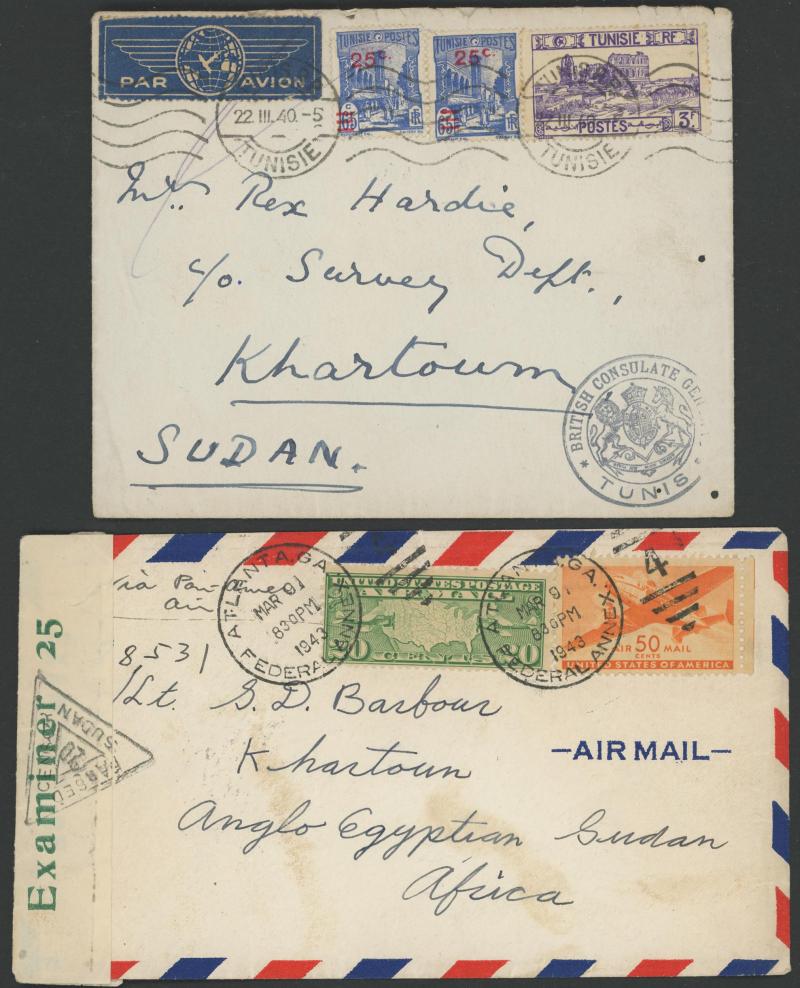 PAR AVION
TUNISIE POSTES
25c.
65c
RF
TUNISIE POSTES
25c.
65c
RF
TUNISIE RF
POSTES 3F
22 III.40.-5
TUNISIE
TUNIS
III 40
TUNISIE
Mr. Rex Hardie,
c/o. Survey Dept.,
Khartoum
SUDAN.
* BRITISH CONSULATE GEN
TUNIS
Examiner 25
SUDAN
20
Via Pan Amer
air
ATLANTA, GA.
MAR 91
830PM
1943
FEDERAL ANNEX
UNITED STATES POSTAGE
20 CENTS 20
ATLANTA, GA.
MAR 91
830PM
1943
FEDERAL ANNEX
4
AIR 50 MAIL
CENTS
UNITED STATES OF AMERICA
8531
/Lt. G. D. Barbour
Khartoun
Anglo Egyptian Sudan
Africa
—AIR MAIL—